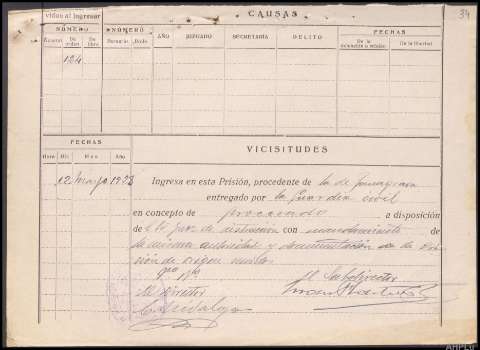 viduo al ingresar
CAUSAS
34
NÚMERO
NÚMERO
AÑO
JUZGADO
SECRETARÍA
DELITO
FECHAS
General
De orden
De libro
Sumario
Rollo
De la
De la libertad
124
FECHAS
VICISITUDES
Hora Día Mes Año
12 Marzo 1938 Ingresa en esta Prisión, procedente de la de
entregado por la Guardia civil
en concepto de procesado a disposición
del Juez de instrucción con mandamiento de
la misma autoridad y documentación de la Pri-
sión de origen
El Subdirector
El Director
Hidalgo
AHPLU